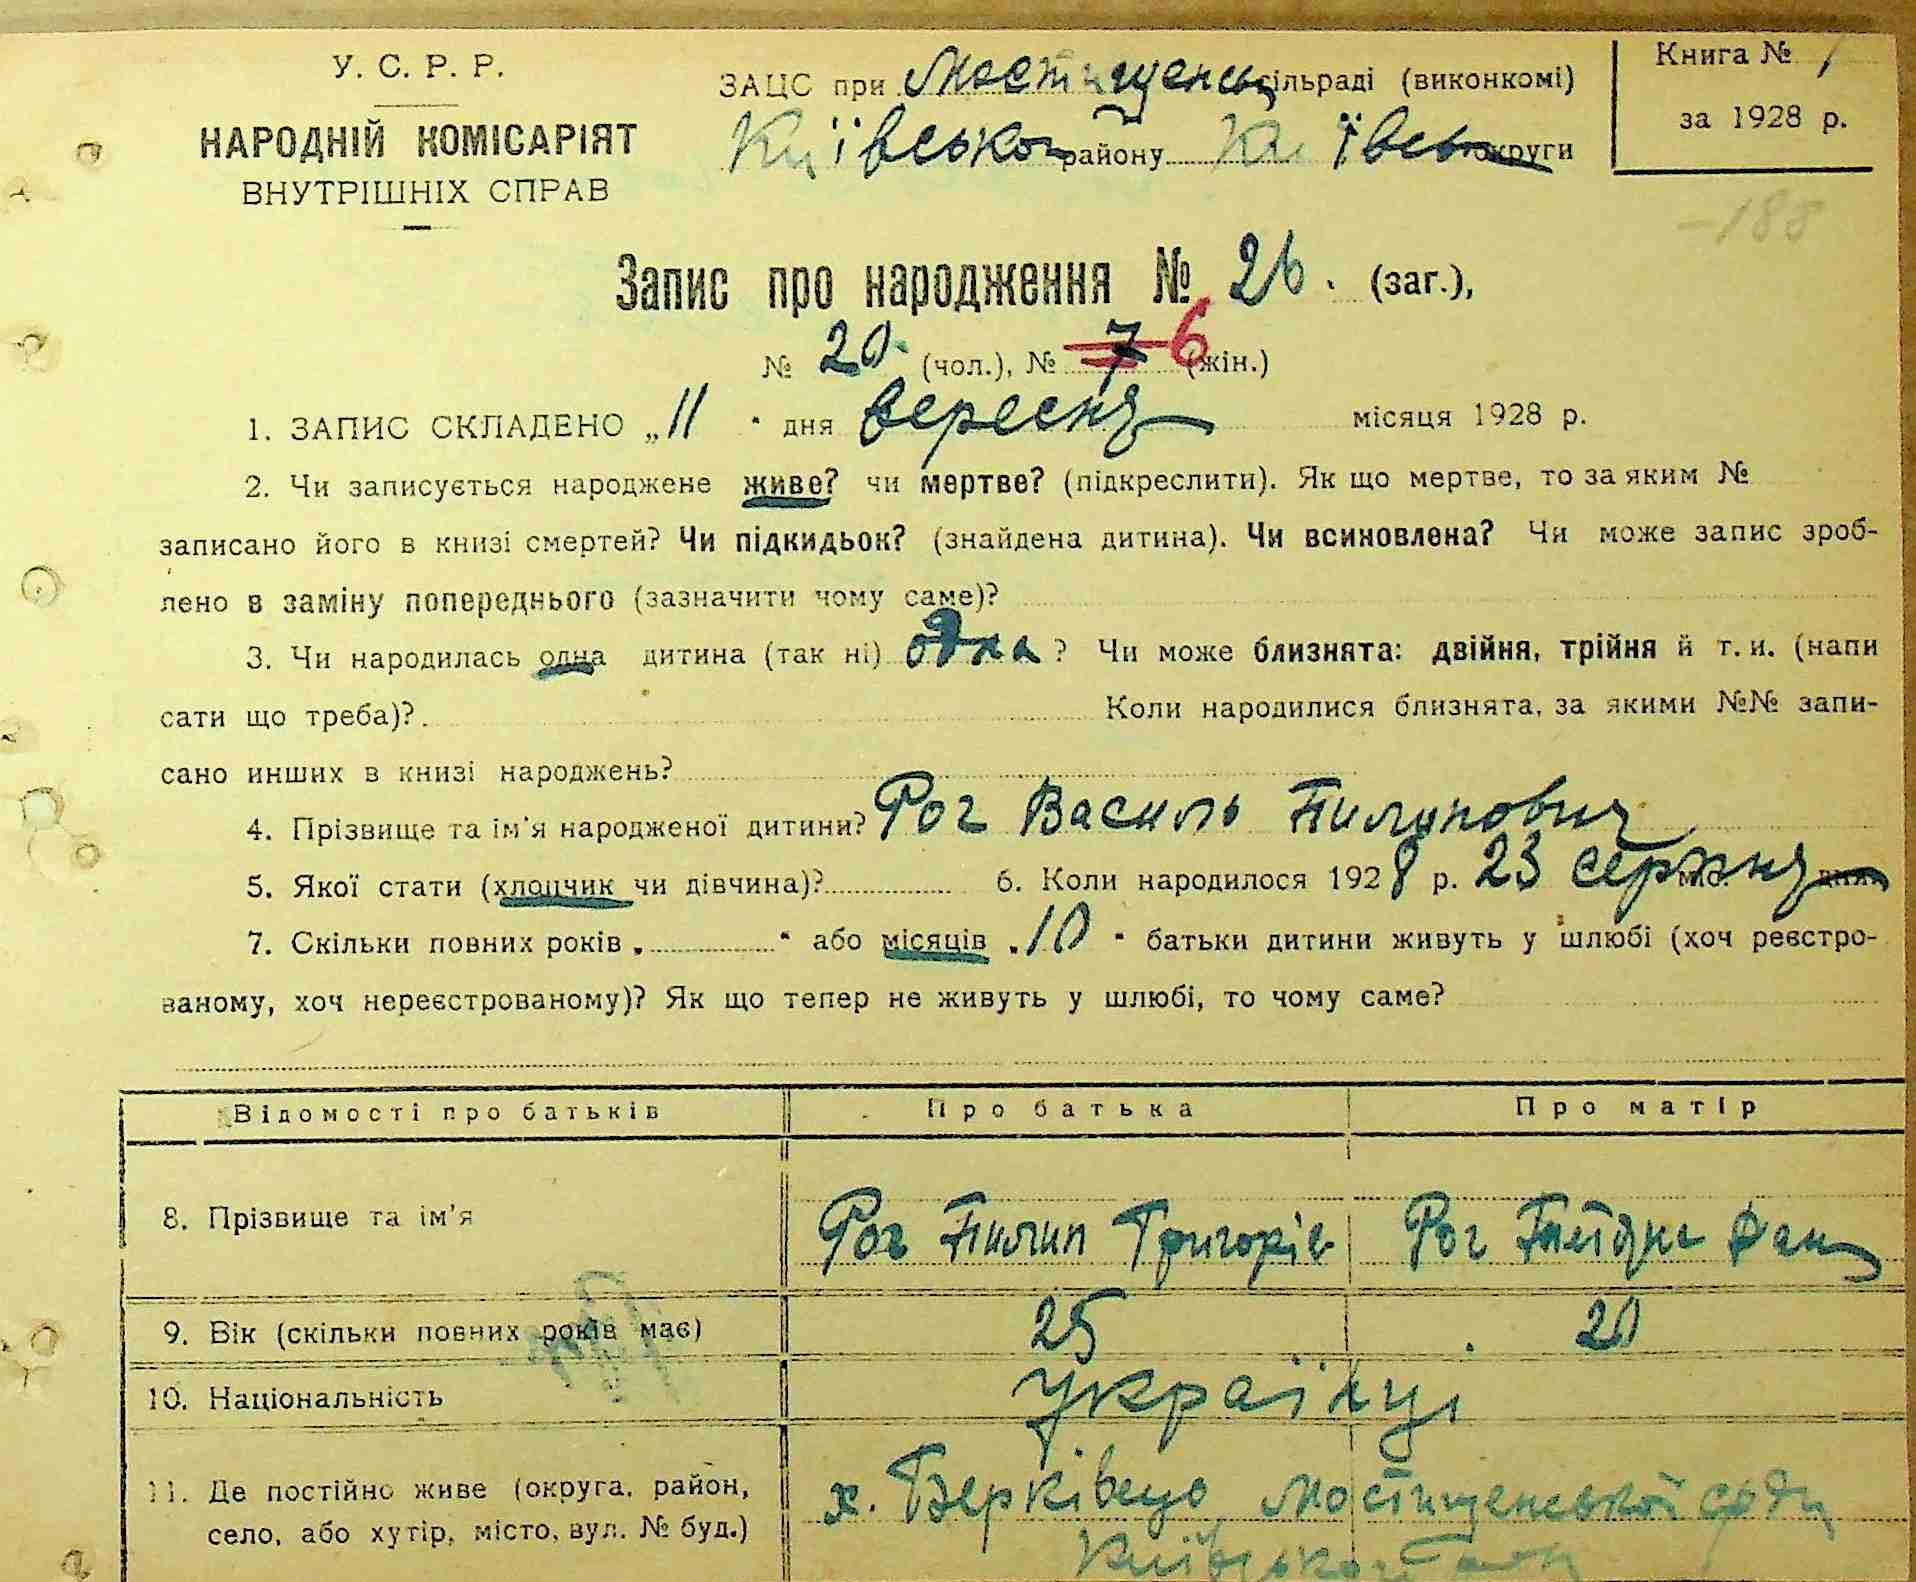 У. С. Р. Р.
НАРОДНІЙ КОМІСАРІЯТ
ВНУТРІШНІХ СПРАВ
ЗАЦС при Мостищенській сільраді (виконкомі)
Київського району Київської округи
Книга № 1
за 1928 р.
-188
Запис про народження № 26. (заг.),
№ 20. (чол.), № 7 6 (жін.)
1. ЗАПИС СКЛАДЕНО „11" дня вересня місяця 1928 р.
2. Чи записується народжене живе? чи мертве? (підкреслити). Як що мертве, то за яким №
записано його в книзі смертей? Чи підкидьок? (знайдена дитина). Чи всиновлена? Чи може запис зроб-
лено в заміну попереднього (зазначити чому саме)?
3. Чи народилась одна дитина (так ні) одна ? Чи може близнята: двійня, трійня й т. и. (напи
сати що треба)? Коли народилися близнята, за якими №№ запи-
сано инших в книзі народжень?
4. Прізвище та ім'я народженої дитини? Рог Василь Пилипович
5. Якої стати (хлопчик чи дівчина)? 6. Коли народилося 1928 р. 23 серпня міс. дня
7. Скільки повних років „ " або місяців „10" батьки дитини живуть у шлюбі (хоч реєстро-
ваному, хоч нереєстрованому)? Як що тепер не живуть у шлюбі, то чому саме?
Відомості про батьків Про батька Про матір
8. Прізвище та ім'я Рог Пилип Григорів Рог
9. Вік (скільки повних років має) 25 20
10. Національність Українці
11. Де постійно живе (округа, район, х. Берківець Мостищенської сради
село, або хутір, місто, вул. № буд.) Київського